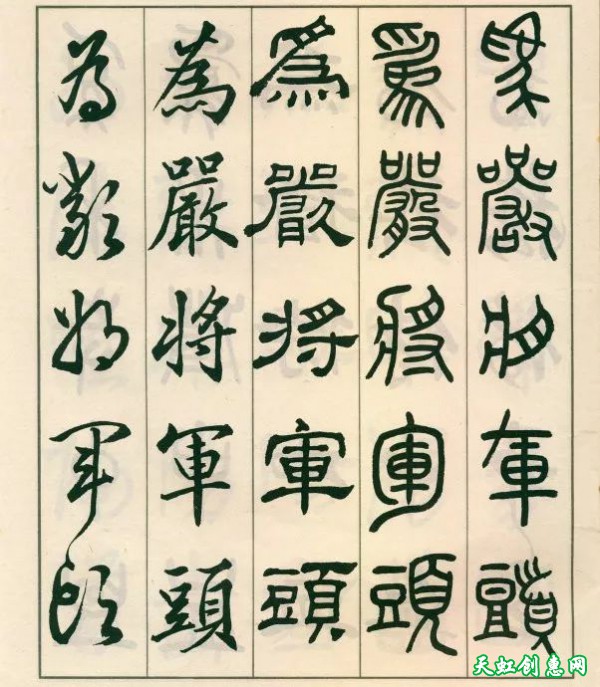 為嚴將軍頭
為嚴將軍頭
為嚴將軍頭
為嚴將軍頭
為嚴將軍頭
天虹创惠网